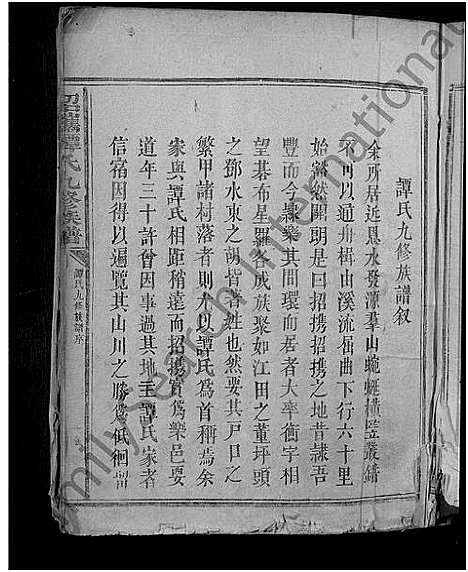 譚氏九修族譜叙
余所居近恩水發源羣山蜿蜒橫竖叢錯
不可以通舟楫山溪流屈曲下行六十里
始谿然開朗是曰招携招携之地昔隷吾
豐而今隷樂其間環而居者大率衡宇相
望棊布星羅各成族聚如江田之董坪頭
之鄧水東之胡皆著姓也然要其戸口之
繁甲諸村落者則不以譚氏爲首稱焉余
家與譚氏相距稍遠而招携實爲樂邑要
道年三十許曾因事過其地主譚氏家者
信宿因得以遍覽其山川之勝爲低徊留
招携譚氏九修族譜
譚氏九修族譜序
FamilySearch International